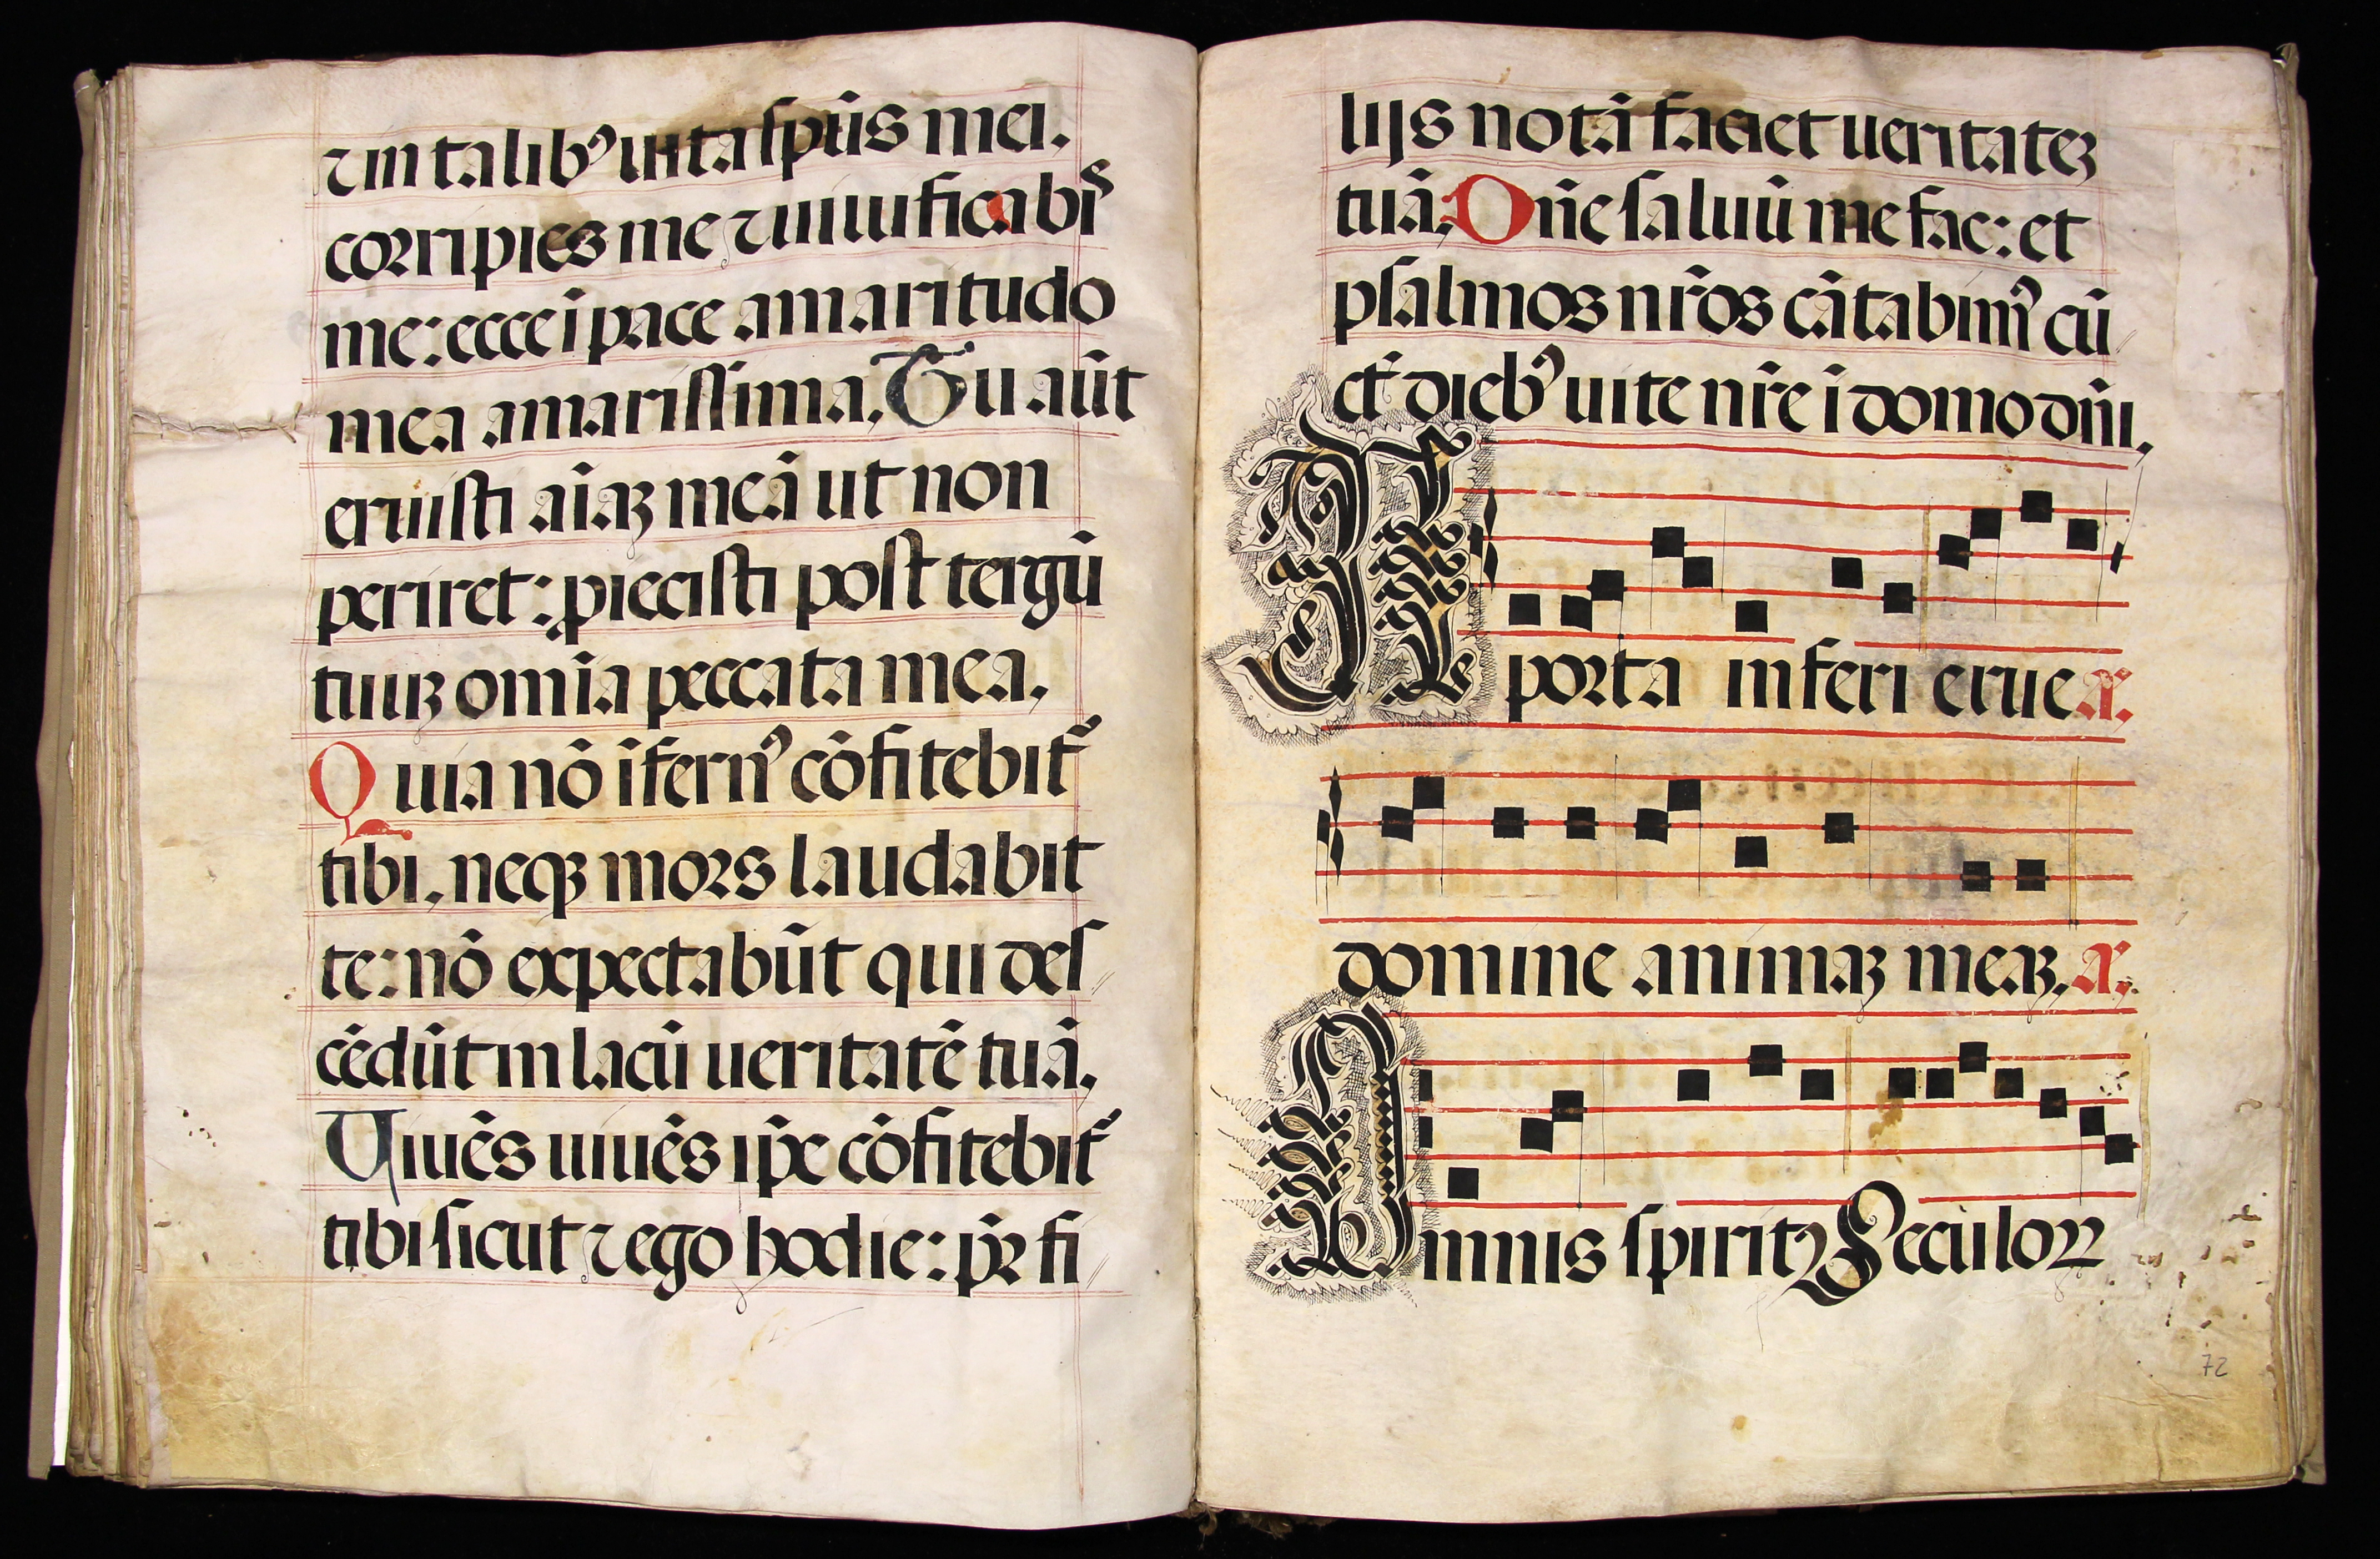 ⁊ in talibꝰ uita sp̄us mei.
corripies me ⁊ uiuificabis
me: ecce ī pace amaritudo
mea amarissima. Tu aūt
eruisti aīaꝫ meā ut non
periret: ꝓiecisti post tergū
tuuꝫ om̄ia peccata mea.
Quia nō īfernꝰ cōfitebit᷑
tibi. neqꝫ mors laudabit
te: nō expectabūt qui des
cēdūt in lacū ueritatē tuā.
Uiuēs uiuēs ip̄e cōfitebit᷑
tibi sicut ⁊ ego hodie: pr̄ fi
lijs notā faciet ueritateꝫ
tuā. Dn̄e saluū me fac: et
psalmos nr̄os cātabimꝰ cū
ct̄ diebꝰ uite nr̄e ī domo dn̄i.
A porta inferi erue a.
domine animaꝫ meaꝫ. a.
Omnis spiritꝰ Seculoꝝ
72